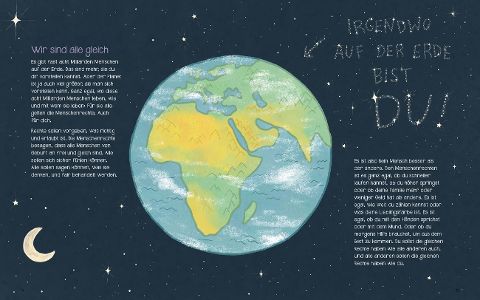 Wir sind alle gleich
Es gibt fast acht Milliarden Menschen
auf der Erde. Das sind mehr, als du
dir vorstellen kannst. Aber der Planet
ist ja auch viel größer, als man sich
vorstellen kann. Ganz egal, wo diese
acht Milliarden Menschen leben, wie
und mit wem sie leben: Für sie alle
gelten die Menschenrechte. Auch
für dich.
Rechte sollen vorgeben, was richtig
und erlaubt ist. Die Menschenrechte
besagen, dass alle Menschen von
Geburt an frei und gleich sind. Alle
sollen sich sicher fühlen können.
Alle sollen sagen können, was sie
denken, und fair behandelt werden.
IRGENDWO
AUF DER ERDE
BIST
DU!
Es ist also kein Mensch besser als
der andere. Den Menschenrechten
ist es ganz egal, ob du schneller
laufen kannst, ob du höher springst
oder ob deine Familie mehr oder
weniger Geld hat als andere. Es ist
egal, wie weit du zählen kannst oder
was deine Lieblingsfarbe ist. Es ist
egal, ob du mit den Händen sprichst
oder mit dem Mund. Oder ob du
morgens Hilfe brauchst, um aus dem
Bett zu kommen. Du sollst die gleichen
Rechte haben wie alle anderen auch,
und alle anderen sollen die gleichen
Rechte haben wie du.